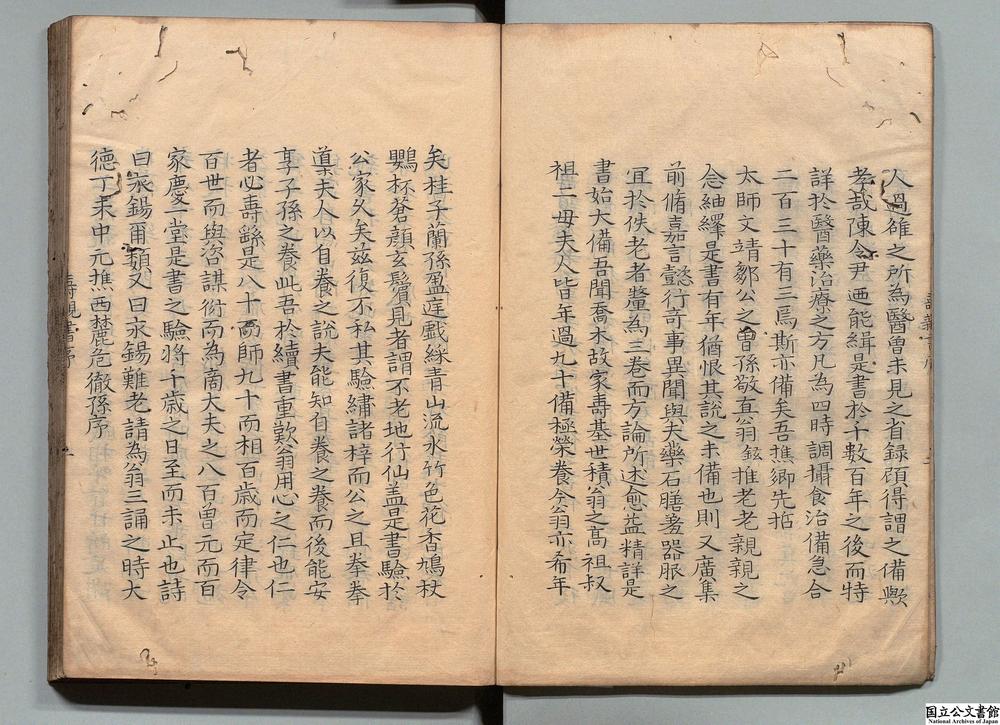 人過雒之所為醫曽未見之省録頋得謂之備歟
孝哉陳令尹廼能緝是書於千數百年之後而特
詳於醫藥治療之方凡為四時調攝食治備急合
二百三十有三焉斯亦備矣吾樵卿先掂
太師文靖鄒公之曽孫敬直翁鉉推老老親親之
念紬繹是書有年猶恨其說之未備也則又廣集
前脩嘉言懿行竒事異聞與夫藥石膳羞器服之
宜於佚老者釐為三卷而方論所述愈益精詳是
書始大備吾聞喬木故家壽基世積翁之髙祖叔
祖二毋夫人皆年過九十備極榮養今翁亦希年
矣桂子蘭孫盈庭戯綵青山流水竹色花香鳩杖
鸚杯蒼顔玄鬢見者謂不老地行仙盖是書驗於
公家久矣玆復不私其驗繡諸梓而公之且拳拳
導夫人以自養之說夫能知自養之養而後能安
享子孫之養此吾於續書重歎翁用心之仁也仁
者必壽繇是八十而師九十而相百歳而定律令
百世而與咨謀衍而為商大夫之八百曽元而百
家慶一堂是書之驗將千歳之日至而未止也詩
曰永錫爾類又曰永錫難老請為翁三誦之時大
徳丁未中元樵西麓危徹孫序
壽親書序